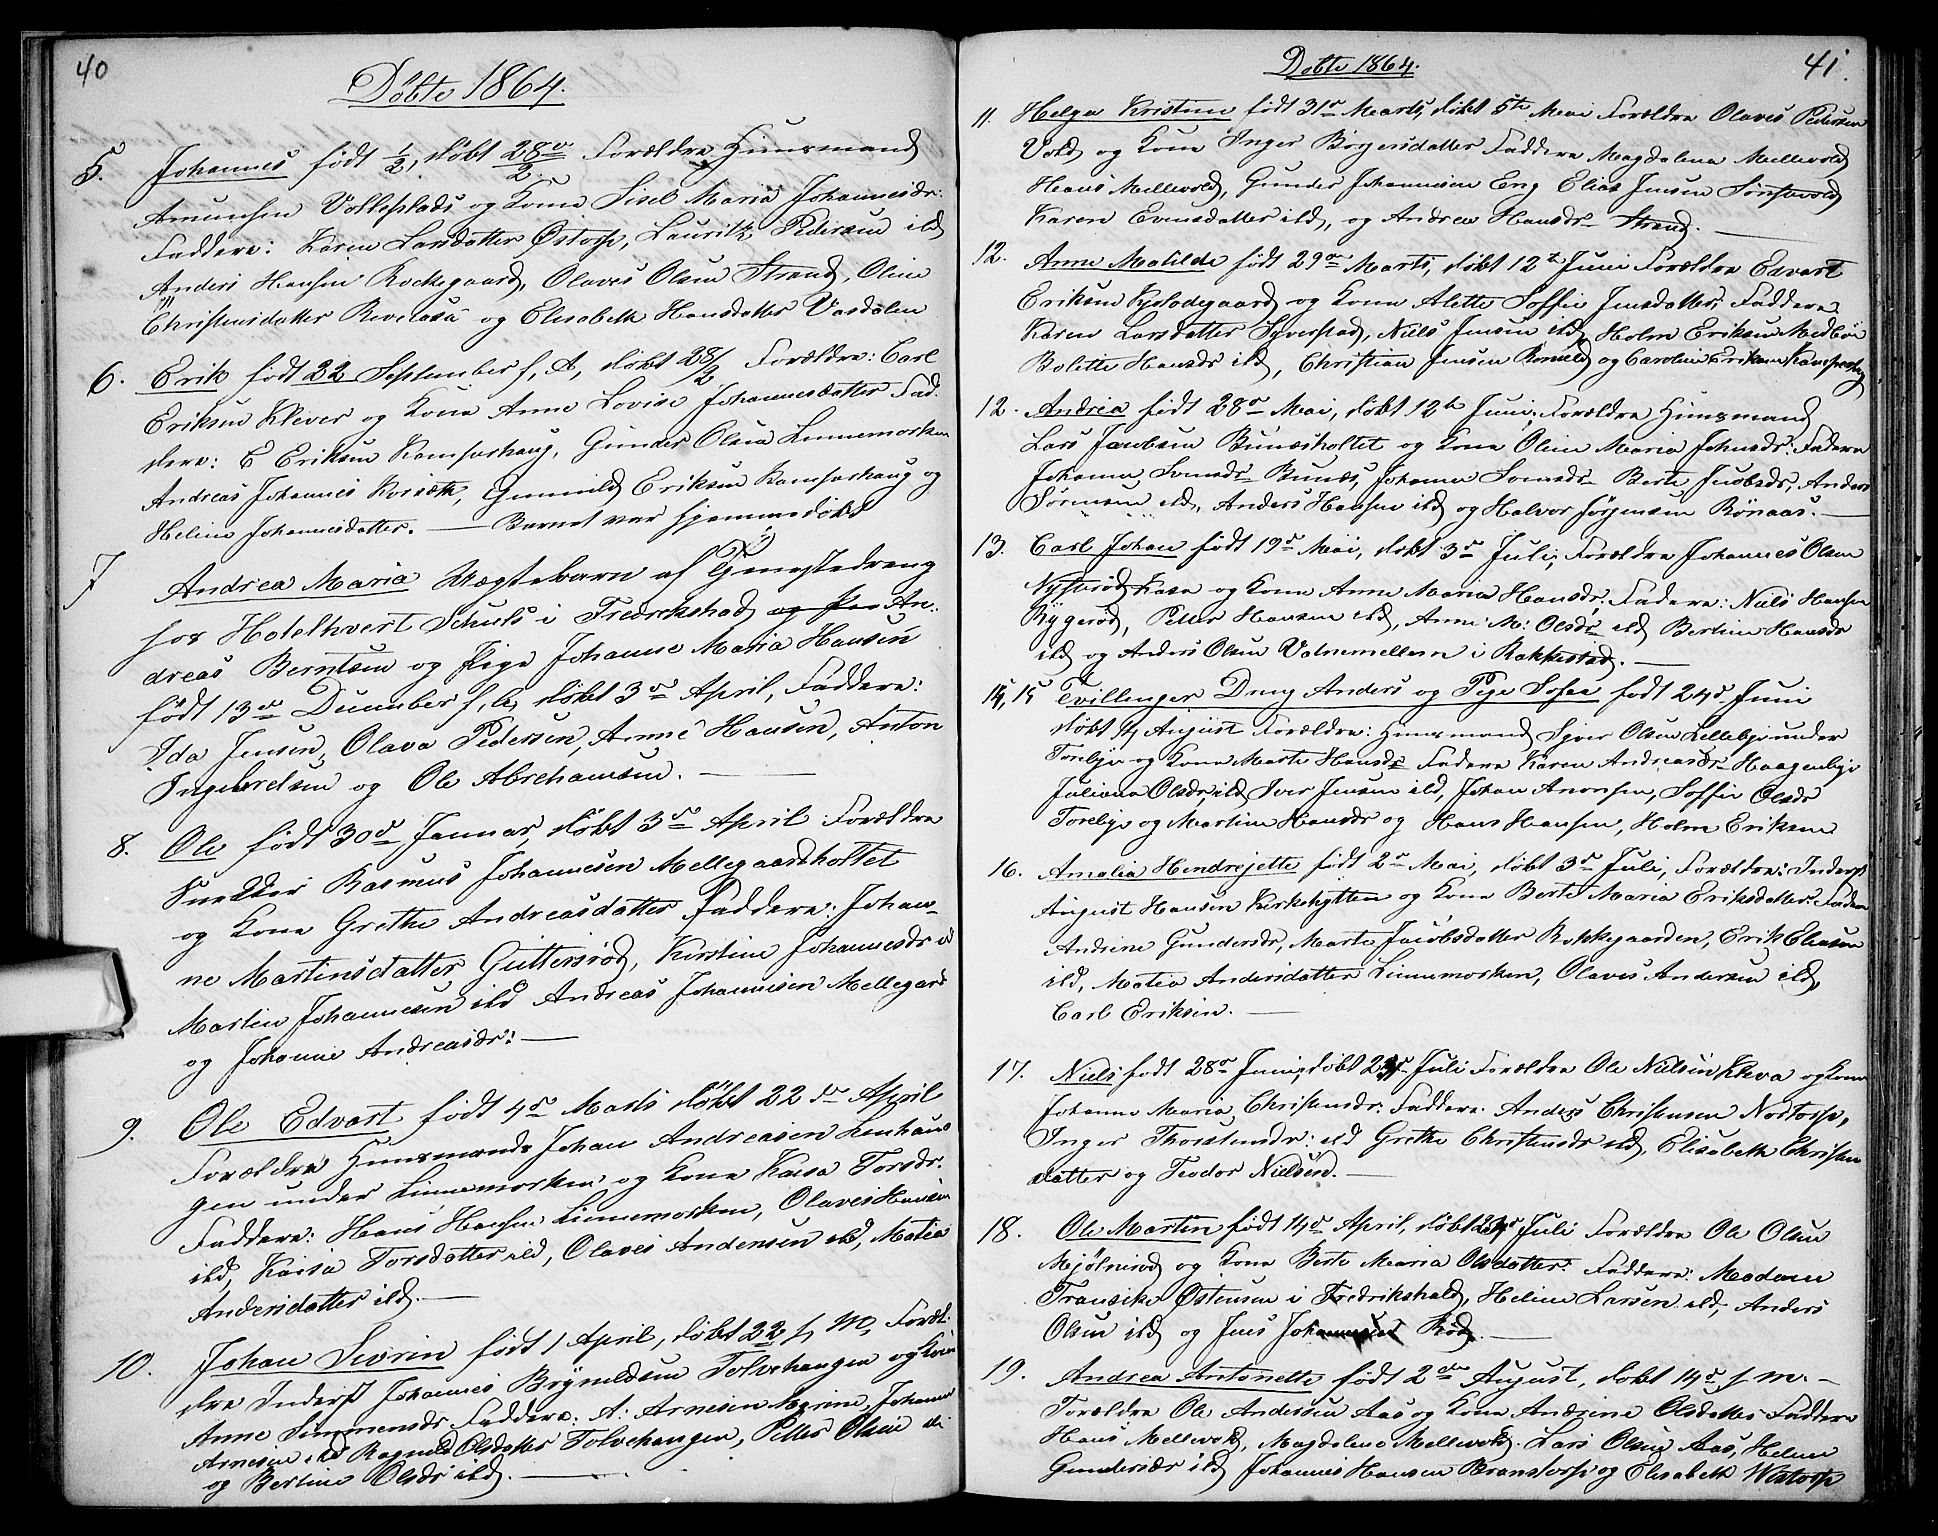 40
Döbte 1864.
5. Johannes født 1/2, döbt 28de/2. Forældre Huusmand
Amunsen Volleplads og Kone Sisel Maria Johannesdr:
Faddere: Karen Larsdatter Østorp, Lauritz Pedersen ibd
Anders Hansen Rockegaard, Olaves Olsen Strand, Oline
Christensdatter Revelaså og Elisabeth Hansdatter Vasdalen
6. Erik født 22 September f, A, döbt 28/2 Forældre: Carl
Eriksen Klever og Kone Anne Lovise Johannesdatter Fad-
dere: E Eriksen Kamperhaug, Gunder Olsen Linnemorken
Andreas Johannes Korsæth, Gunnild Eriksen Kamperhaug og
Helene Johannesdatter. — Barnet var hjemmedöbt
7 Andrea Maria Uægtebarn af Tjenestedreng
hos Hotelhvert Schuls i Fredrikshad og Per An-
dreas Berntsen og Pige Johanne Maria Hansen
født 13de December f, A, döbt 3de April, Faddere:
Ida Jensen, Olava Pedersen, Anne Hansen, Anton
Ingebretsen og Ole Abrehamsen. —
8. Ole født 30d Januar, döbt 3de April Forældre
Rasmus Johannesen Mellegaardholtet
og Kone Grethe Andreasdatter Faddere: Johan-
ne Martinsdatter Guttersrød, Kirstine Johannesdr ibd
Martin Johannesen ibd Andreas Johannesen Mellegard
og Johanne Andreasdr: —
9. Ole Edvart født 4de Marts döbt 22de April
Forældre Huusmands Johan Andreasen Lenhau-
gen under Linnemorken og Kone Kaisa Torsdr.
Faddere: Hans Hansen Linnemorken, Olaves Hansen
ibd, Kaisa Torsdatter ibd, Olaves Andersen ibd, Matea
Andersdatter ibd. —
10. Johan Severin født 1 April, döbt 22 f, M, Foræl-
dre Inderst Johannes Brynildsen Tolvehaugen og Kone
Anne Simmensdr Faddere: A: Arnesen Marine, Johanne
Arnesen ibd Ragnild Olsdatter Tolvehaugen, Petter Olsen ib.
og Bertine Olsdr ibd. —
41.
Döbte 1864.
11. Helga Kristine født 31d Marts, döbt 5te Mai Forældre Olaves Pedersen
Vold og Kone Inger Börgersdatter Faddere Magdalena Mellevold
Hans Mellevold, Gunder Johannesen Eng Elias Jensen Sörstevold
Karen Evensdatter ibd, og Andrea Hansdr Strand. —
12. Anne Matilde født 29de Marts, döbt 12te Juni Forældre Edvart
Eriksen Kjosodegaard og Kone Alette Soffie Jensdatter Faddere
Karen Larsdatter Syverstad, Niels Jensen ibd, Holm Eriksen Medbøe
Bolette Hansdr ibd, Christian Jensen Romeld og Caroline Eriksen Kamperhøg
12. Andrea født 28de Mai, döbt 12te Juni, Forældre Huusmand
Lars Jacobsen Bunæsholtet og Kone Oline Maria Johnsdr: Faddere
Johanne Svensdr Bunæs, Johanne Svensdr Berte Jacobsdr, Anders
Sörensen ibd, Anders Hansen ibd og Halvor Jörgensen Rönaas. —
13. Carl Johan født 19d Mai, döbt 3de Juli, Forældre Johannes Olsen
Nysteröd Kasa og Kone Anne Maria Hansdr: Faddere: Niels Hansen
Rygeröd, Petter Hansen ibd, Anne M: Olsdr ibd Bertine Hansdr
ibd og Anders Olsen Volnemellem i Rakkestad. —
14, 15 Tvillinger Dreng Anders og Pige Sofie født 24d Juni
döbt 14 August Forældre: Huusmand Syver Olsen Lillebye under
Torebye og Kone Marte Hansdr Faddere Karen Andreasdr Haagenbye
Juliana Olsdr, ibd Iver Jensen ibd, Johan Aronsen, Soffie Olsdr
Torebye og Martine Hansdr og Hans Hansen, Holm Eriksen
16. Amalia Hendrejette født 2d Mai, döbt 3de Juli, Forældre: Inderst
August Hansen Kirkehytten og Kone Berte Maria Eriksdatter Faddere
Andrine Gundersdr, Marte Jacobsdatter Rokkegaarden, Erik Eliasen
ibd, Matea Andersdatter Linnemorken, Olaves Andersen ibd,
Carl Eriksen. —
17. Niels født 28d Juni, döbt 24d Juli Forældre Ole Nielsen Kleva og Kone
Johanne Maria Christensdr: Faddere: Anders Christensen Nordtorp,
Inger Thorstensdr: ibd Grethe Christensdr ibd, Elisabeth Christen
datter og Teodor Nielsen. —
18. Ole Martin født 14d April, döbt 24d Juli Forældre Ole Olsen
Mjölneröd og Kone Berte Maria Olsdatter: Faddere: Madame
Fransike Østensen i Fredrikshald, Heline Larsen ibd, Anders
Olsen ibd og Jens Johannesen Röd. —
19. Andrea Antonette født 2den August, döbt 14d f M. —
Forældre Ole Andersen Aas og Kone Andrine Olsdatter Faddere
Hans Mellevold, Magdalena Mellevold. Lars Olsen Aas, Helene
Gundersdr ibd Johannes Hansen Branstorp og Elisabeth Westorp